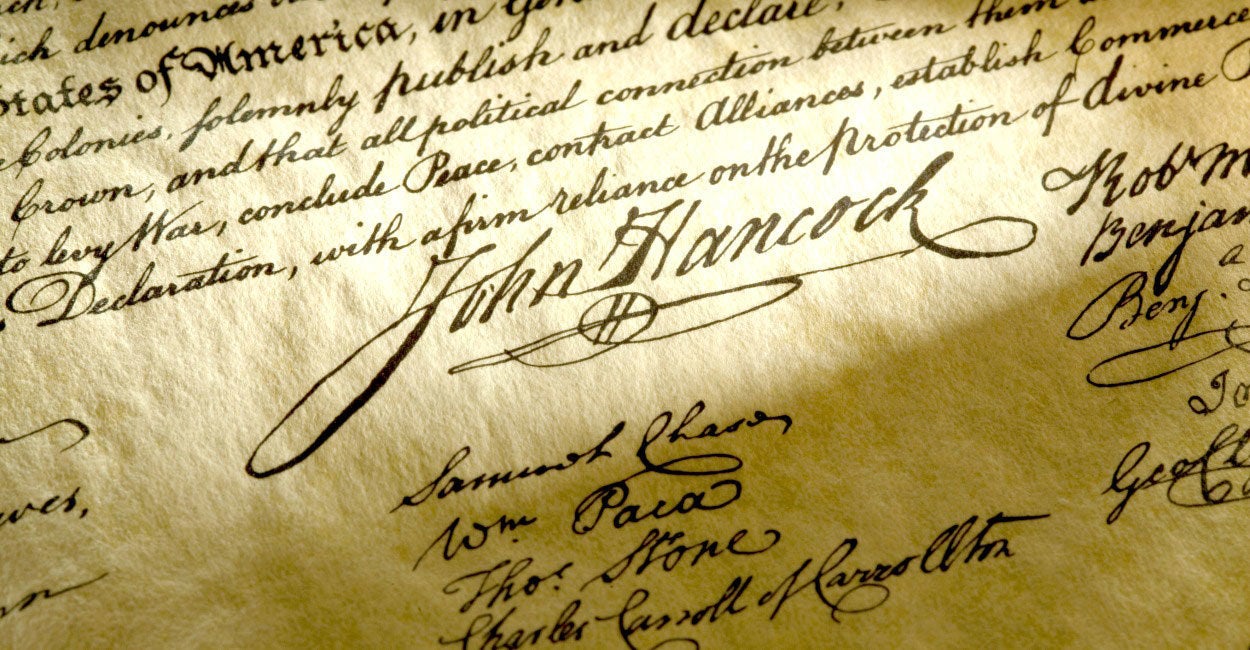 ich denounces
States of America, in Gen
Colonies, solemnly publish and declare,
Crown, and that all political connection between them
to levy War, conclude Peace, contract Alliances, establish Commerce
Declaration, with a firm reliance on the protection of divine
John Hancock
Rob^t M
Benjam
Benj.
Geo Cl
Samuel Chase
W^m Paca
Tho^s Stone
Charles Carroll of Carrollton